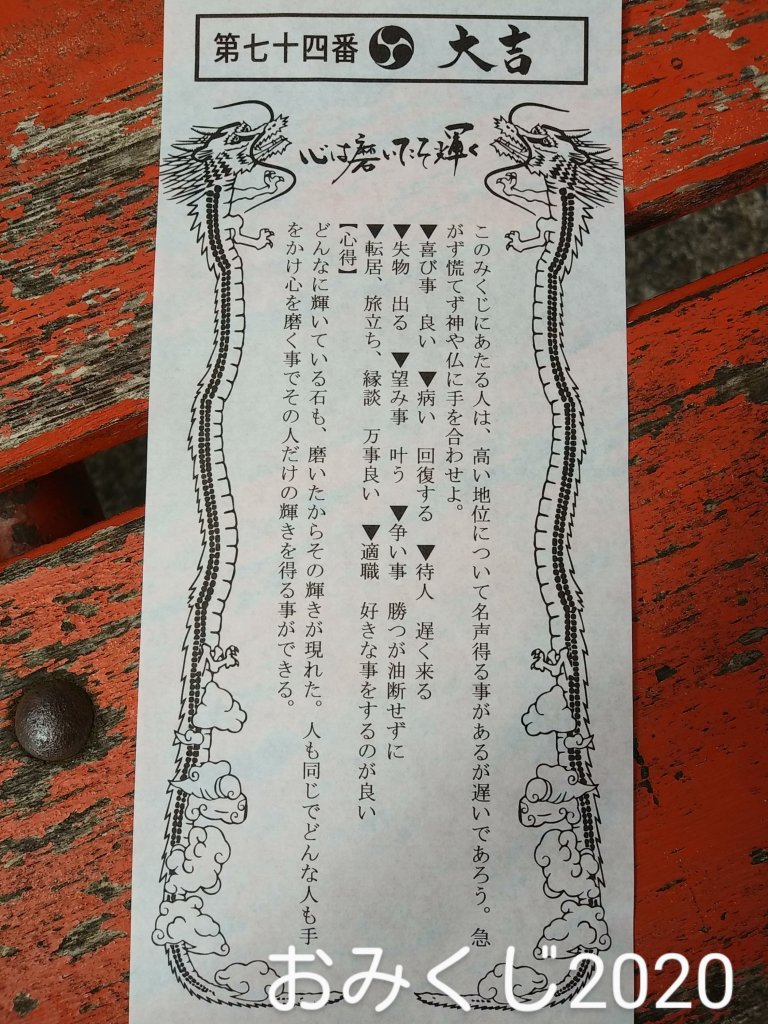 第七十四番 大吉
心は磨いてこそ輝く
このみくじにあたる人は、高い地位について名声得る事があるが遅いであろう。急
がず慌てず神や仏に手を合わせよ。
▼喜び事 良い ▼病い 回復する ▼待人 遅く来る
▼失物 出る ▼望み事 叶う ▼争い事 勝つが油断せずに
▼転居、旅立ち、縁談 万事良い ▼適職 好きな事をするのが良い
【心得】
どんなに輝いている石も、磨いたからその輝きが現れた。人も同じでどんな人も手
をかけ心を磨く事でその人だけの輝きを得る事ができる。
おみくじ2020